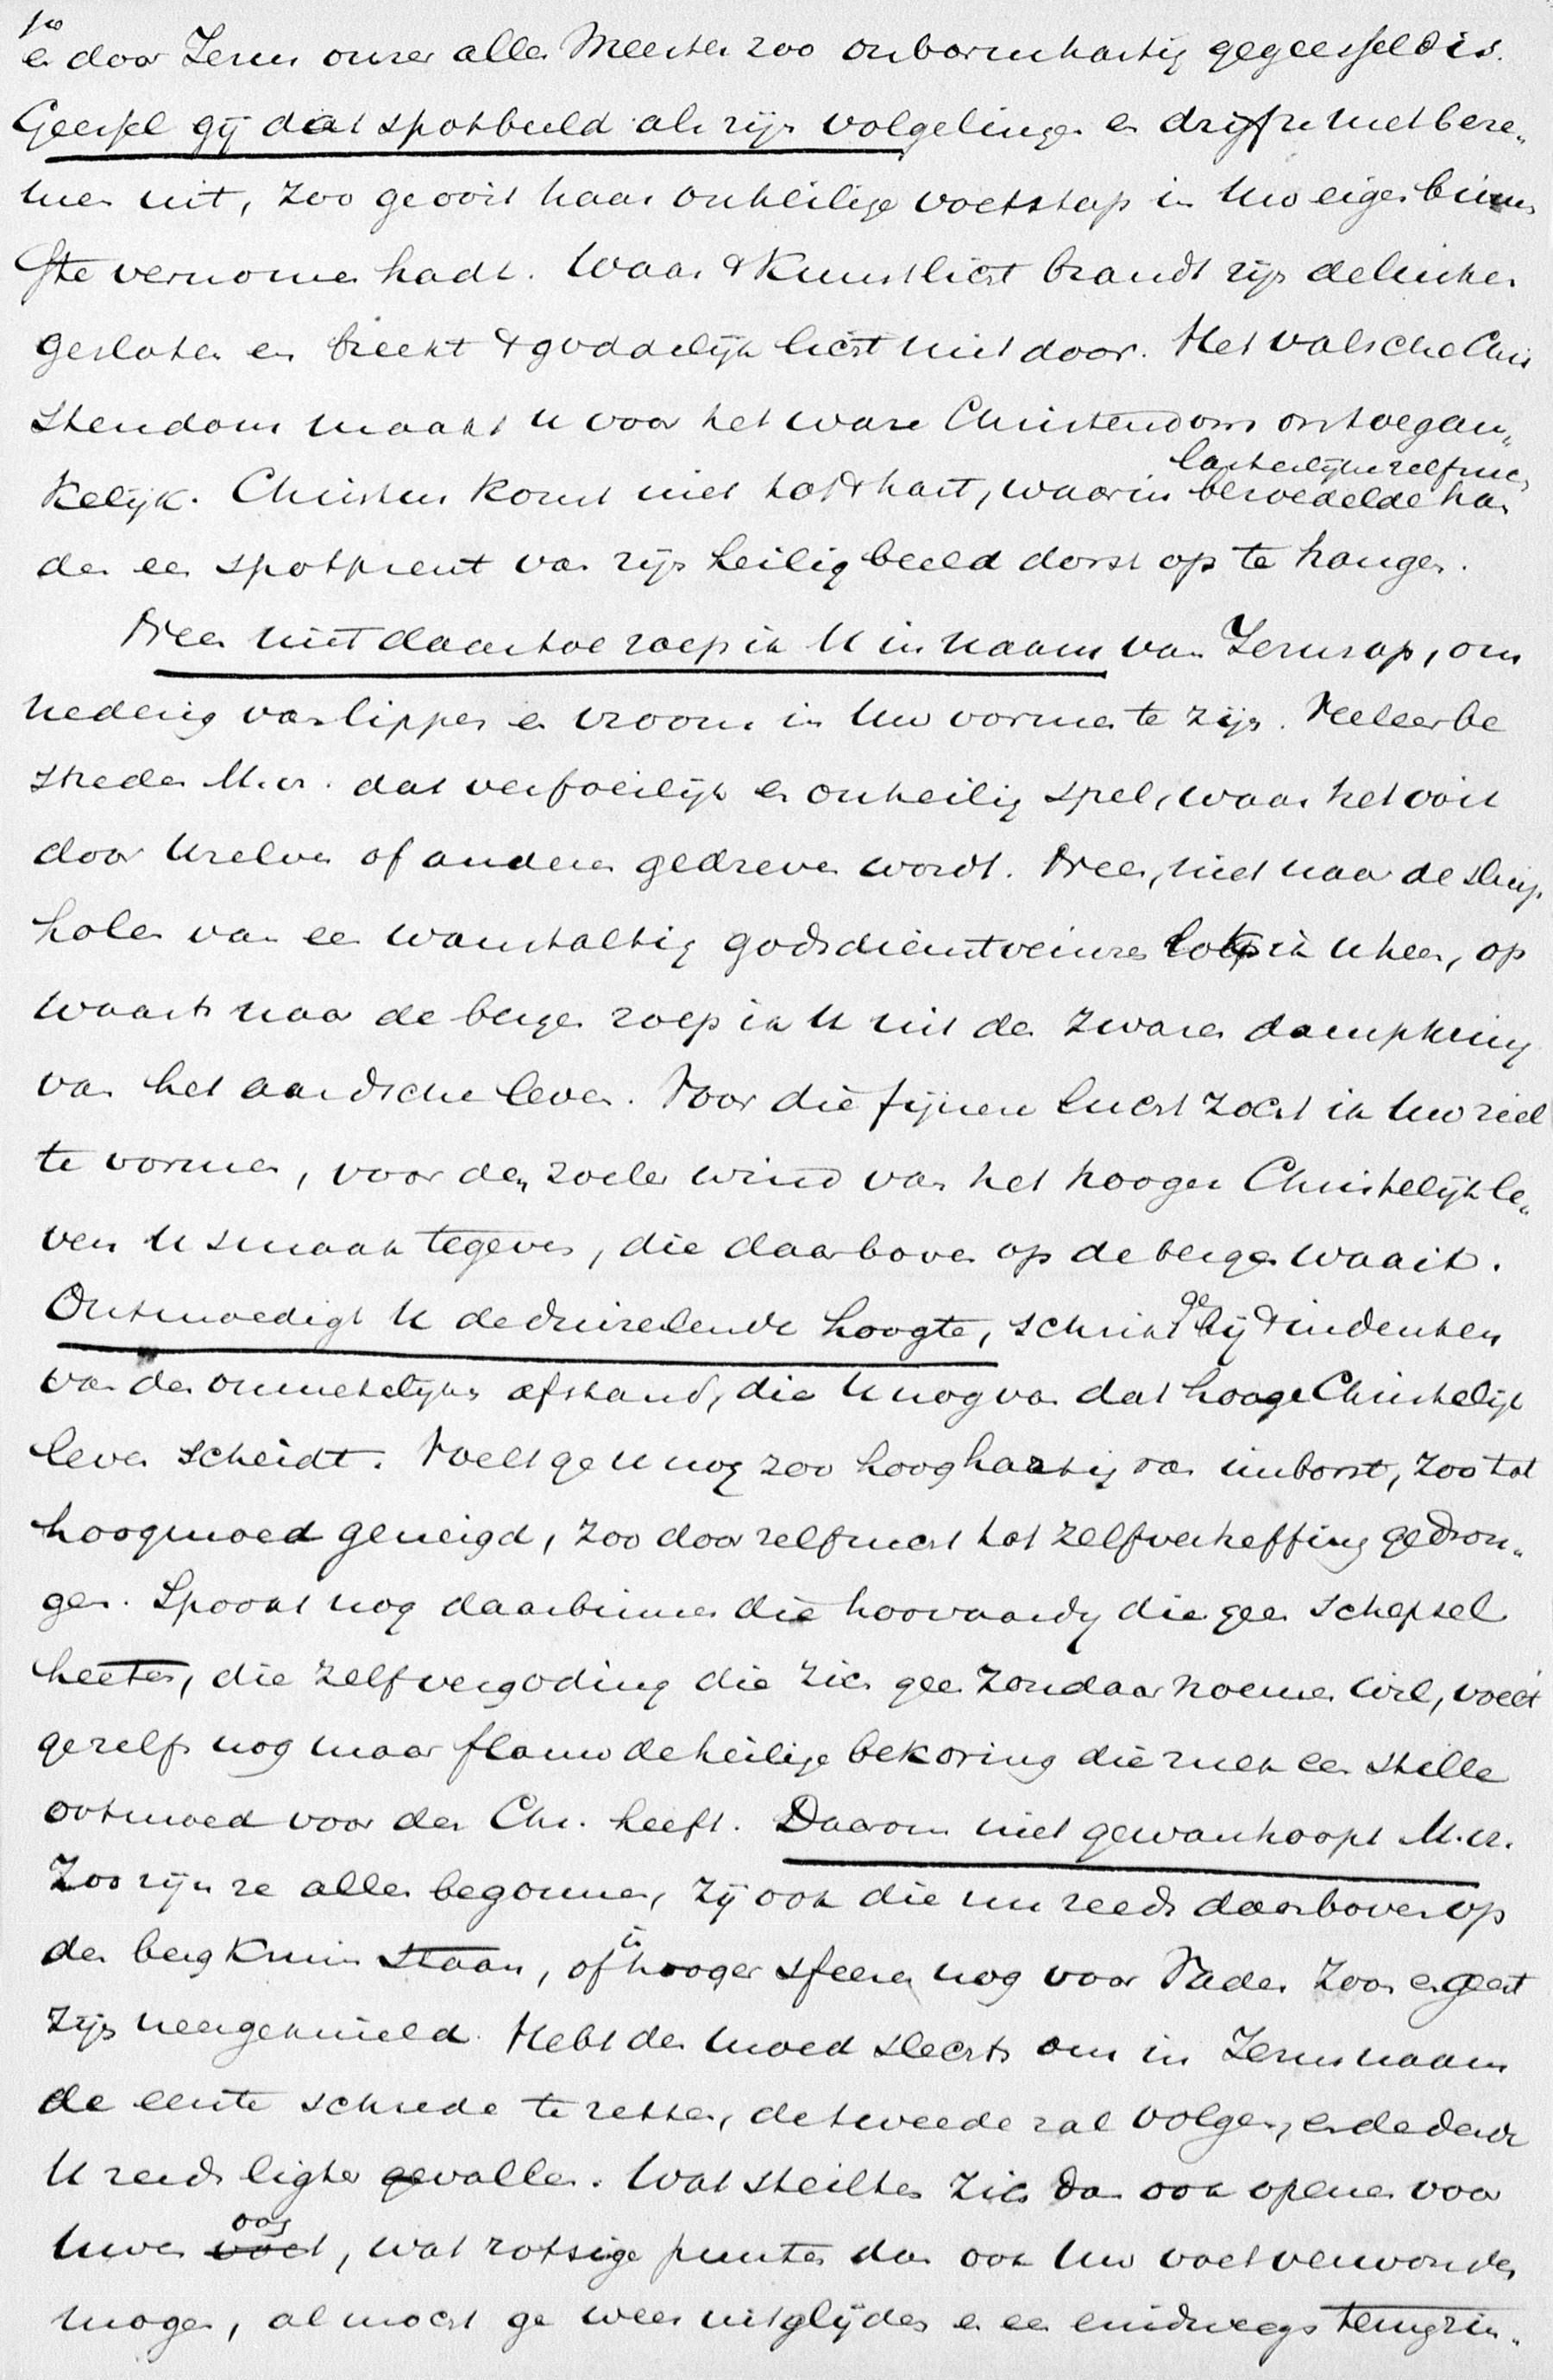 zoo
en door Jezus onzer aller Meester zoo onbarmhartig gegeesseld is.
Geessel gij dat spotbeeld als zijn volgelingen en drijf ze met beze„
men uit, zoo ge ooit haar onheilige voetstap in Uw eigen binnen
ste vernomen hadt. Waar 't Kunstlicht brandt zijn de luiken
gesloten en breekt 't goddelijk licht niet door. Het valsche Chris
stendom maakt u voor het ware Christendom ontoegan„
lasterlijke zelfzucht
kelijk. Christus komt niet tot 't hart, waarin bezoedelde han
den een spotprent van zijn heilig beeld dorst op te hangen.
Neen niet daartoe roep ik U in naam van Jezus op, om
nederig van lippen en vroom in Uw vormen te zijn. Veeleer be
streden M.vr. dat verfoeilijk en onheilig spel, waar het ooit
door Uzelven of anderen gedreven wordt. Neen, niet naar de sluip
holen van een wanstaltig godsdienstveinzen lok ik u heen, op
waarts naar de bergen roep ik U uit den zwaren dampkring
van het aardsche leven. Voor die fijnere lucht zocht ik Uw ziel
te vormen, voor den zoelen wind van het hooger Christelijk le„
ven U smaak te geven, die daarboven op de bergen waait.
Ontmoedigt U de duizelende hoogte, schrikt ge bij 't indenken
van den onmetelijken afstand, die U nog van dat hooge Christelijk
leven scheidt. Voelt ge u nog zoo hooghartig van inborst, zoo tot
hoogmoed geneigd, zoo door zelfzucht tot zelfverheffing gedron„
gen. Spookt nog daarbinnen die hoovaardij die geen schepsel
heeten, die zelfvergoding die zich geen zondaar noemen wil, voelt
ge zelfs nog maar flauw de heilige bekoring die zulk een stille
ootmoed voor den Chr. heeft. Daarom niet gewanhoopt M.vr.
Zoo zijn ze allen begonnen, zij ook die nu reeds daarboven op
den bergkruin staan, of in hooger sfeeren nog voor Vader Zoon en geest
zijn neergeknield. Hebt den moed slechts om in Jezus naam
de eerste schrede te zetten, de tweede zal volgen, en de derde
U reeds lichter vallen. Wat steilten zich dan ook openen voor
Uwen oog, wat rotsige punten dan ook Uw voet verwonden
mogen, al mocht ge weer uitglijden en een eindweegs terugzin„